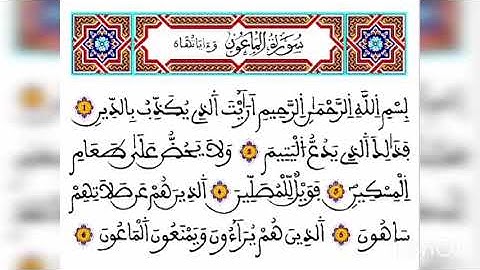 سُورَةُ الْمَاعُونِ وَءَايَاتُهَا
بِسْمِ اللَّهِ الرَّحْمَٰنِ الرَّحِيمِ أَرَٰيْتَ الَّذِي يُكَذِّبُ بِالدِّينِ 1
فَذَٰلِكَ الَّذِي يَدُعُّ الْيَتِيمَ 2 وَلَا يَحُضُّ عَلَىٰ طَعَامِ
الْمِسْكِينِ 3 فَوَيْلٌ لِّلْمُصَلِّينَ 4 الَّذِينَ هُمْ عَن صَلَاتِهِمْ
سَاهُونَ 5 الَّذِينَ هُمْ يُرَآءُونَ وَيَمْنَعُونَ الْمَاعُونَ 6